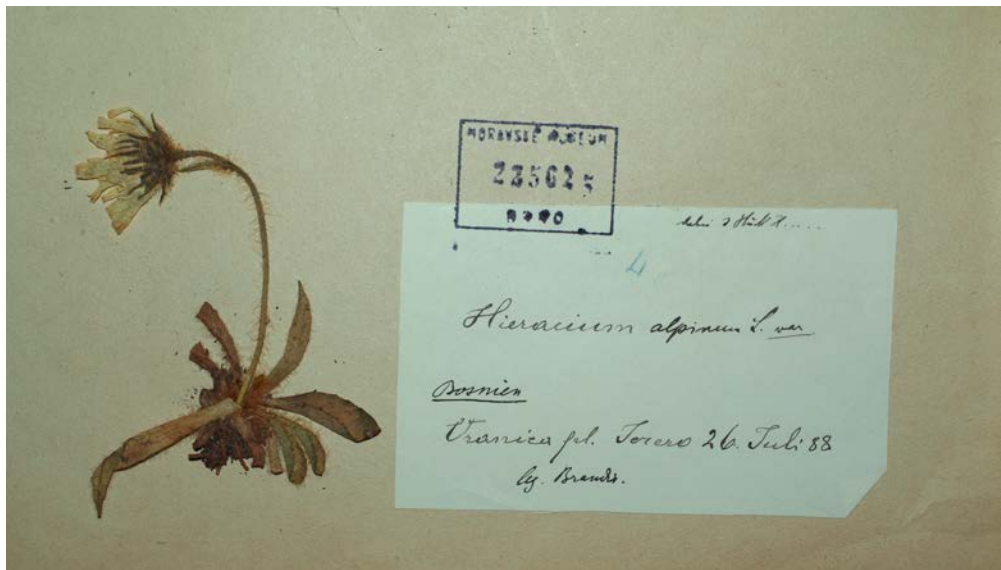 MORAVSKÉ MUSEUM
BRNO
4
Hieracium alpinum L. var
Bosnien
Vranica pl. Jezero 26. Juli 88
lg. Brandis.